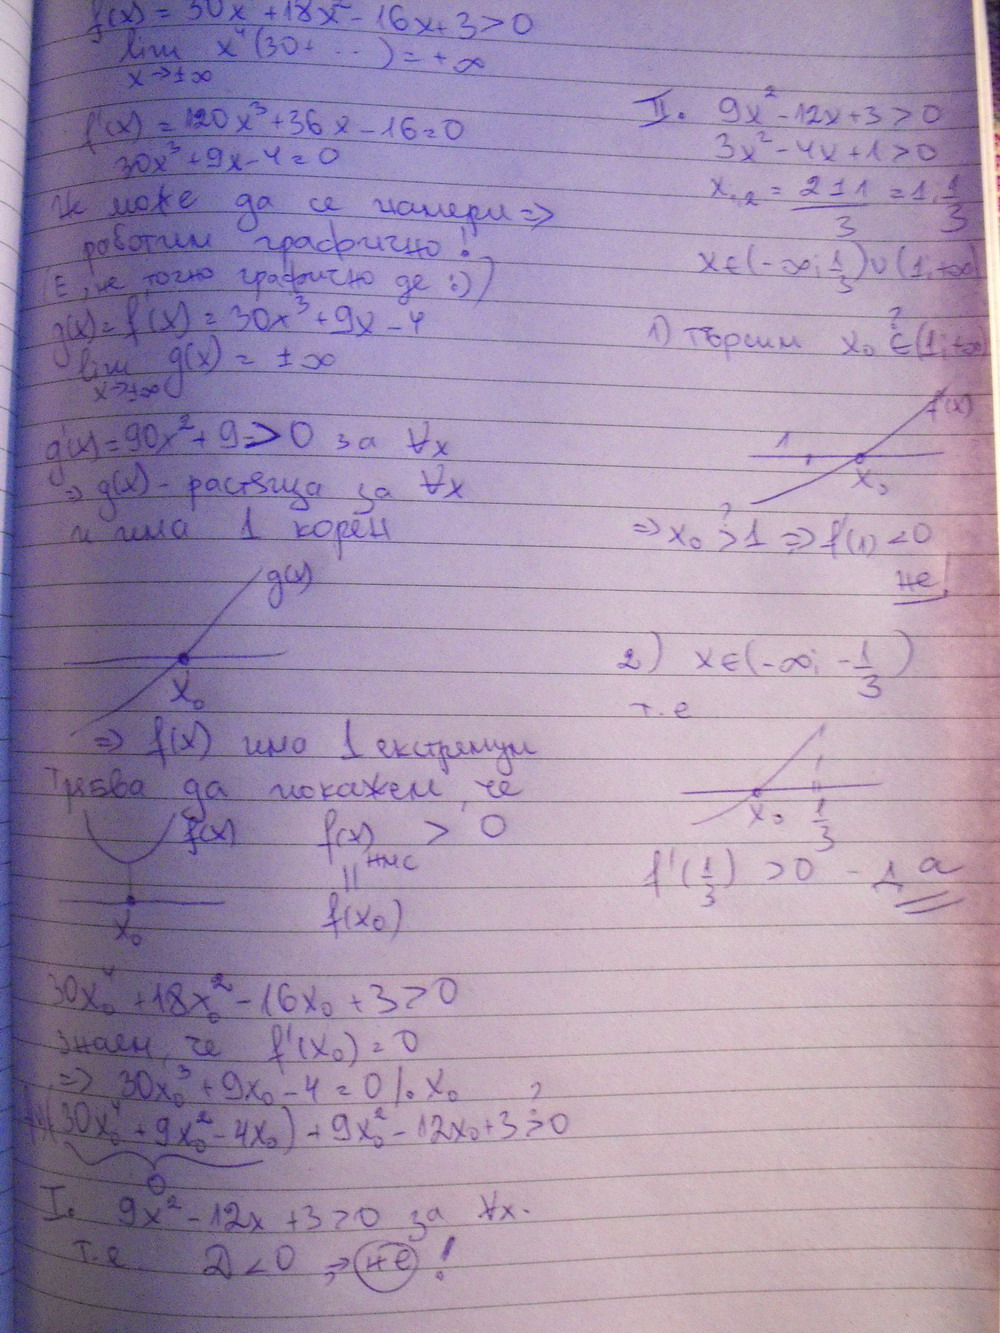 f(x) = 30x⁴ + 18x² - 16x + 3 > 0
lim x⁴(30+ ...) = +∞
x→±∞
f'(x) = 120x³ + 36x - 16 = 0
30x³ + 9x - 4 = 0
Не може да се намери =>
работим графично!
(Е, не точно графично де :))
g(x) = f'(x) = 30x³ + 9x - 4
lim g(x) = ±∞
x→±∞
g'(x) = 90x² + 9 => 0 за ∀x
=> g(x) - растяща за ∀x
и има 1 корен
g(x)
x₀
=> f(x) има 1 екстремум
Трябва да покажем, че
f(x) f(x)нмс > 0
||
x₀ f(x₀)
30x₀⁴ + 18x₀² - 16x₀ + 3 > 0
знаем, че f'(x₀) = 0
=> 30x₀³ + 9x₀ - 4 = 0 |. x₀
(30x₀⁴ + 9x₀² - 4x₀) + 9x₀² - 12x₀ + 3 >? 0
0
I. 9x² - 12x + 3 > 0 за ∀x.
т.е D < 0 => не !
II. 9x² - 12x + 3 > 0
3x² - 4x + 1 > 0
x₁,₂ = (2±1)/3 = 1; 1/3
x∈(-∞; 1/3)∪(1; +∞)
1) Търсим x₀ ?∈ (1; +∞)
f'(x)
1
x₀
=> x₀ >? 1 => f'(1) < 0
не!
2) x∈(-∞; -1/3)
т.е
x₀ 1/3
f'(1/3) > 0 - да